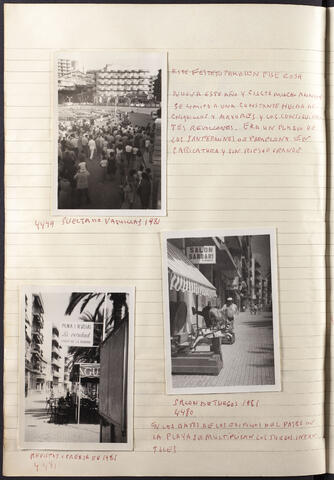 ESTE FESTEJO PARALON FUE COSA
NUEVA ESTE AÑO Y
SE LIMITO A UNA CONSTANTE HUIDA DE
CHIQUILLOS Y MAYORES Y LOS CONSIGUIEN
TES REVOLCONES. ERA UN PLAGIO DE
LOS SANFERMINES DE PAMPLONA EN
CARICATURA Y SIN RIESGO GRANDE
4479 SUELTA DE VAQUILLAS 1981
SALON
SANDARI
SALON DE JUEGOS 1981
4480
EN LOS BAJOS DE LOS EDIFICIOS DEL PASEO DE
LA PLAYA SE MULTIPLICAN LOS JUEGOS INFAN
TILES
La verdad
REVISTAS Y PRENSA DE 1981
4481